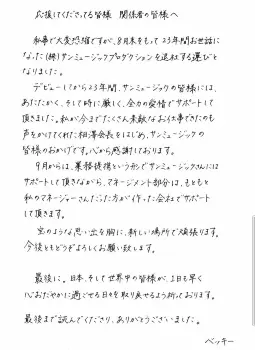 応援してくださってる皆様 関係者の皆様へ
私事で大変恐縮ですが、8月末をもって23年間お世話に
なった(株)サンミュージックプロダクションを退社する運びと
なりました。
デビューしてから23年間、サンミュージックの皆様には、
あたたかく、そして時に厳しく、全力の愛情でサポートして
頂きました。私が今までたくさん素敵なお仕事できたのも
声をかけてくれた相澤会長をはじめ、サンミュージックの
皆様のおかげです。心から感謝しております。
9月からは、業務提携という形でサンミュージックさんには
サポートして頂きながら、マネージメント部分は、もともと
私のマネージャーさんだった方が作った会社でサポート
して頂きます。
宝のような思い出を胸に、新しい場所で頑張ります。
今後ともどうぞよろしくお願い致します。
最後に。日本、そして世界中の皆様が、1日も早く
心おだやかに過ごせる日々を取り戻せるよう祈っております。
最後まで読んでくださり、ありがとうございました。
ベッキー